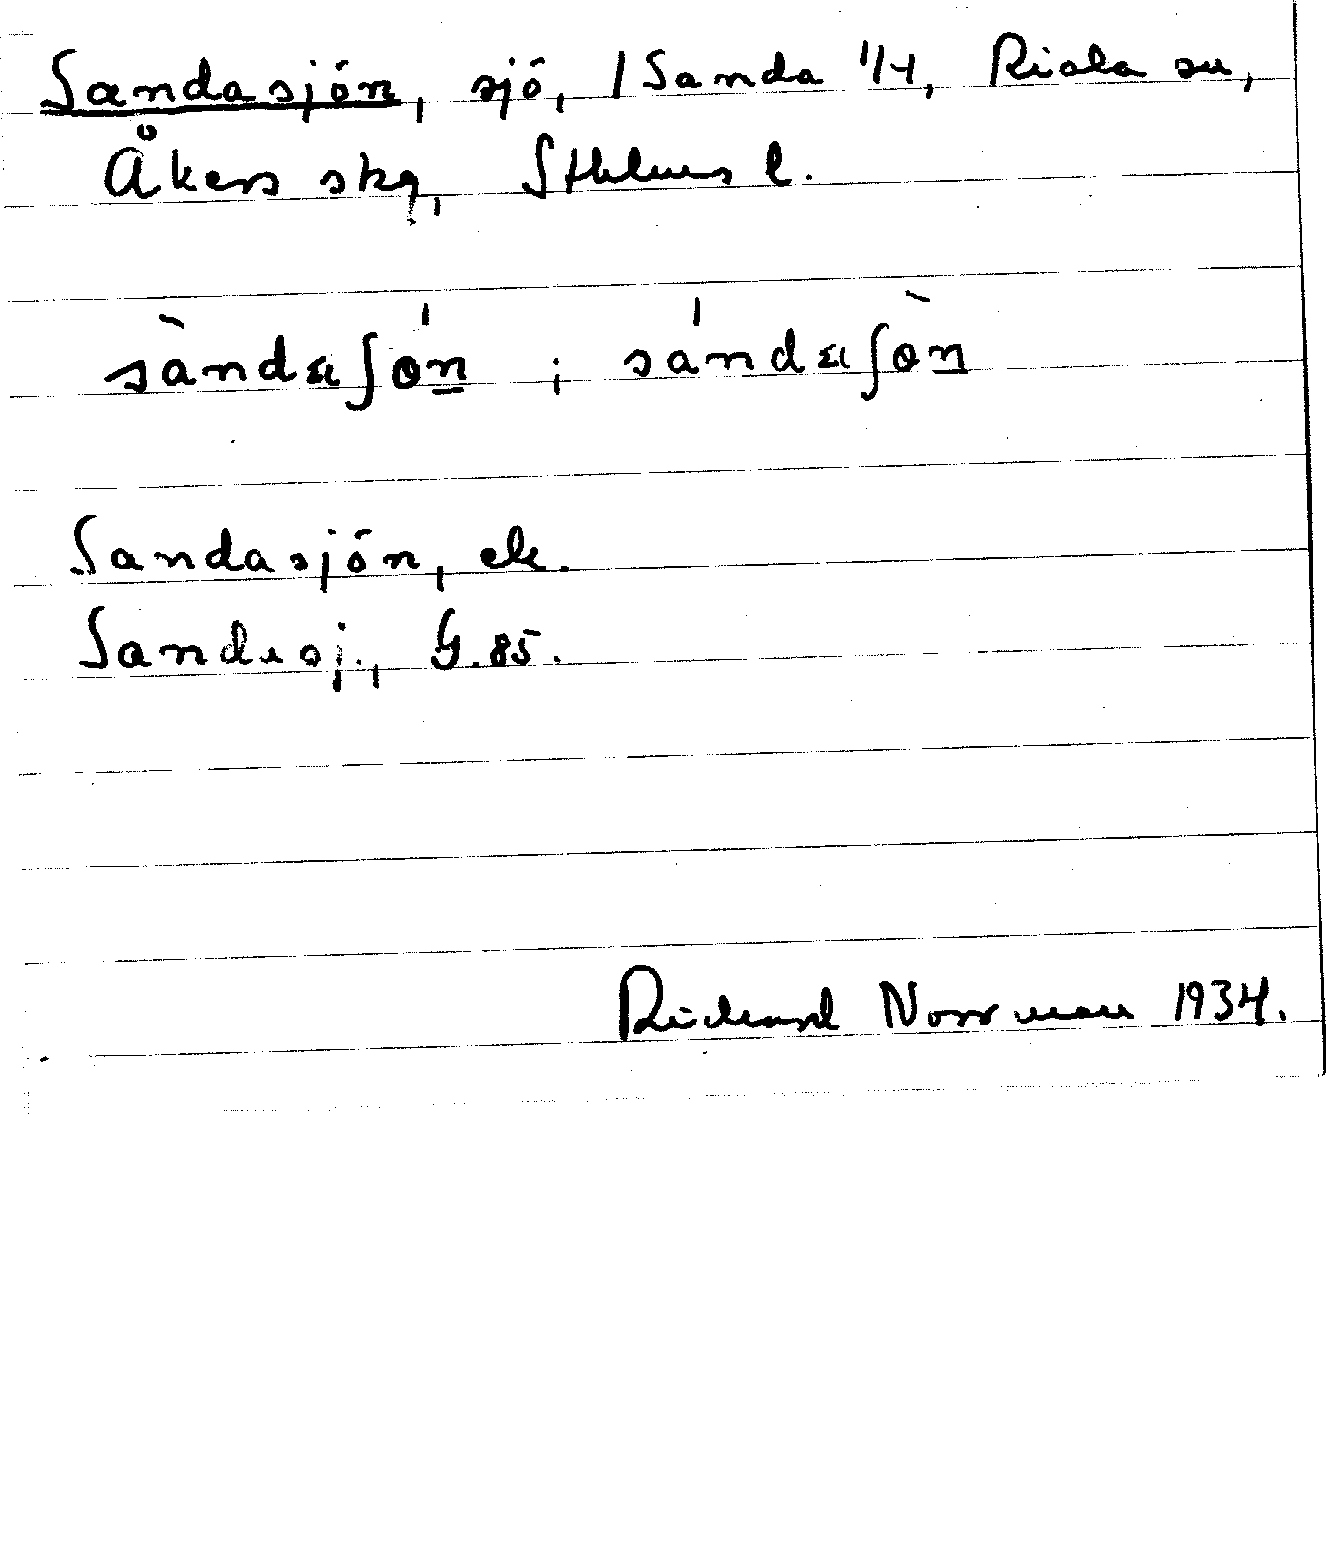 Sandasjön, sjö, / Sanda 1/4, Riala sn,
Åkers skg, Sthlms l.
sàndaʃǿn ; sándaʃøn
Sandasjön, ek.
Sandasj., G. 85.
Richard Norrman 1934.